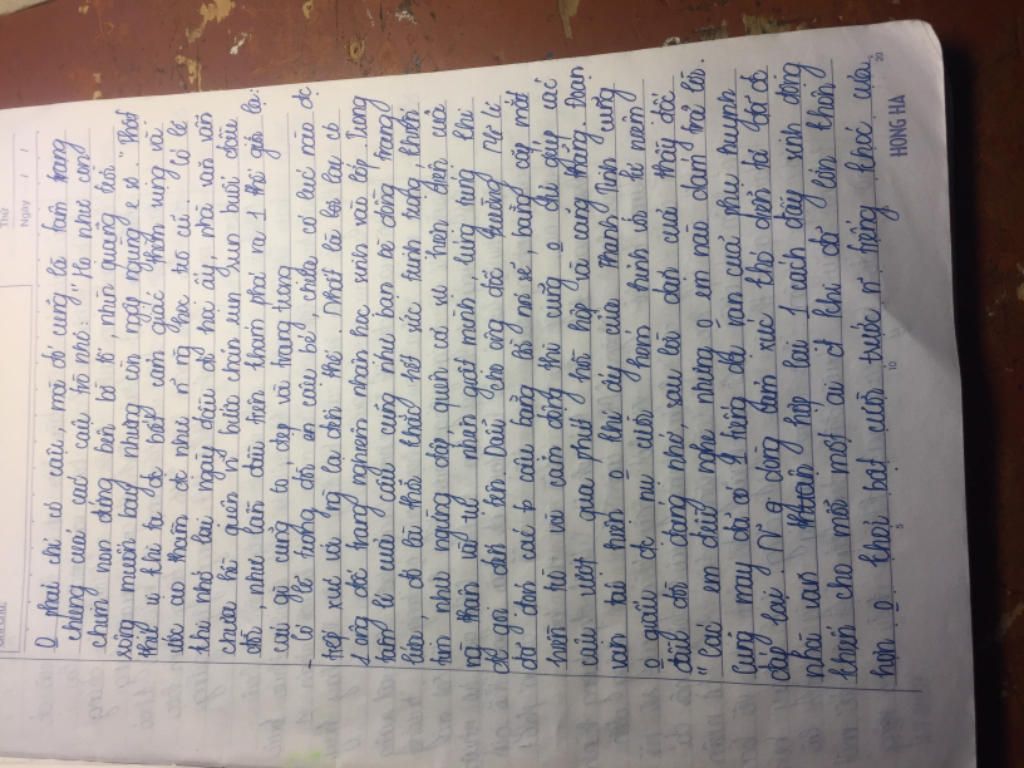 O phải chỉ có cậu, mà đó cũng là tâm trạng
chung của các cậu trò nhỏ: "Họ như con
chim non đứng bên bờ tổ nhìn quãng trời
rộng muốn bay nhưng còn ngập ngừng e sợ." Thật
thú vị khi ta đc biết cảm giác thèm vụng và
ước ao thầm đc như ng học trò cũ. Có lẽ
khi nhớ lại ngày đầu đi học ấy, nhà văn vẫn
chưa hề quên n~ bước chân run run buổi đầu
đời, như lần đầu tiên khám phá ra 1 thế giới lạ:
cái gì cũng to, đẹp và trang trọng
- Có lẽ trong đời cậu bé, chưa có lúc nào đc
tiếp xúc với ng lạ đến thế. Nhất là lại có
1 ông đốc trang nghiêm nhận học sinh vào lớp. Trong
tâm lí của cậu cũng như bạn bè đồng trang
lứa, đó là thời khắc hết sức khiến
tim như ngừng đập, quên cả sự hiện diện của
ng thân và tự nhiên giật mình, lúng túng khi
đc gọi đến tên. Dẫu cho ông đốc trường Mỹ Lí
đã đón các cậu bằng lời nói sẽ, bằng cặp mắt
hiền từ và cảm động thì cũng o đủ giúp các
cậu vượt qua phút hồi hộp và căng thẳng. Đoạn
văn tái hiện o khí ấy của Thanh Tịnh cũng
o giấu đc nụ cười hóm hỉnh với kỉ niệm
đầu đời đáng nhớ, sau lời dặn của thầy đốc
"Các em đều nghe nhưng o em nào dám trả lời.
Cũng may đã có 1 tiếng dạ ran của phụ huynh
đáp lại." N~ dòng cảm xúc thơ điển tả đó đc
nhà văn khẳng hợp lại 1 cách đầy sinh động
khiến cho mỗi một ai đó khi đã lớn khôn
hơn o khỏi bật cười trước n~ tiếng khóc của
5
10
20
HONG HA
Thứ
Ngày / /